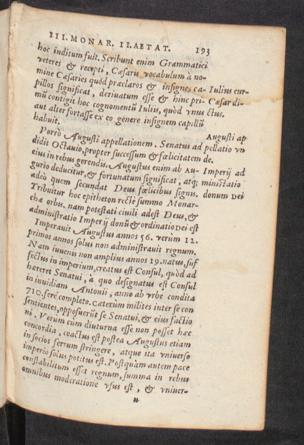 III. MONAR. II. AETAT. 193
hoc inditum fuit. Scribunt enim Grammatici
veteres & recepti, Caesaris vocabulum à no-
mine Caesaries quòd praeclaros & insignes ca-
pillos significat, derivatum esse & hinc pri-
mū contigit hoc cognomentū Iulius, quòd unus eius,
aut alter fortasse ex eo genere insignem capillū
habuit.
Iulius cur
Caesar di-
ctus.
Porrò Augusti appellationem. Senatus ad
didit Octavio, propter successum & foelicitatem
eius in rebus gerendis. Augustus enim ab Au-
gurio deducitur, & fortunatum significat, atq;
adeò quem secundat Deus foelicibus signis.
Tribuitur hoc epitheton rectè summo Monar-
chae orbis. nam potestati civili adest Deus, &
administratio Imperij donū & ordinatio Dei est
Augusti ap
pellatio vn
de.
Imperij ad
ministratio
donum Dei
Imperavit Augustus annos 56. verum 12.
primos annos solus non administravit regnum.
Nam iuvenis non amplius annos 19. natus, suf
fectus in imperium, creatus est Consul, quòd ad
haereret Senatui, à quo designatus est Consul
in invidiam Antonij, anno ab vrbe condita
710. ferè completo. Caeterum milites inter se con
sentientes, opposuerūt se Senatui, & eius factio
ni, Verum cum diuturna esse non posset haec
concordia, coactus est postea Augustus etiam
in socios ferrum stringere, atque ita vniverso
imperio solus potitus est. Postquàm autem pace
constabilitum esset regnum, summa in rebus
omnibus moderatione vsus est, & vniver-
n